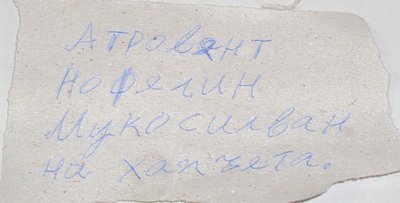 Атровент
Нофелин
Мукосилван
на хапчета.